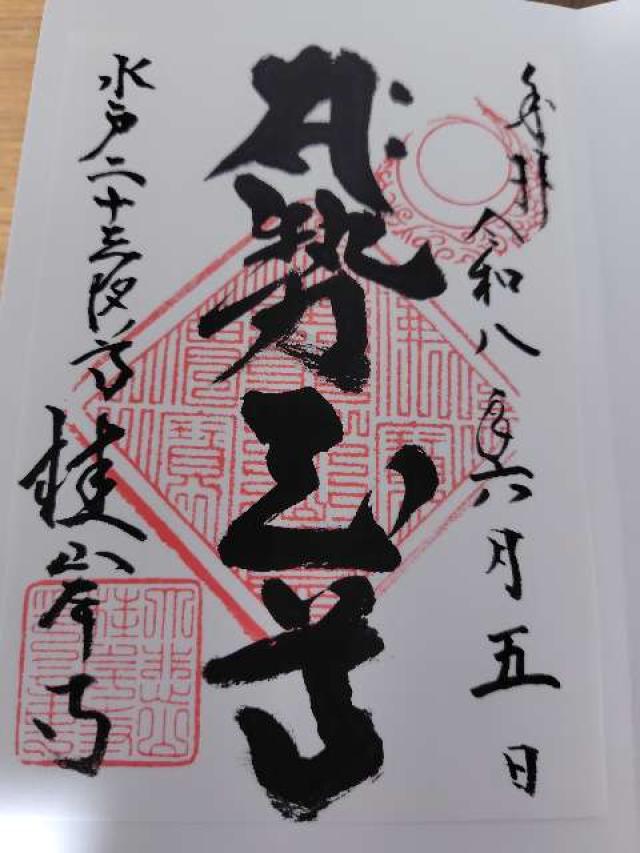 奉拝 令和八年六月五日
勢至尊
水戸二十三夜尊 桂岸寺